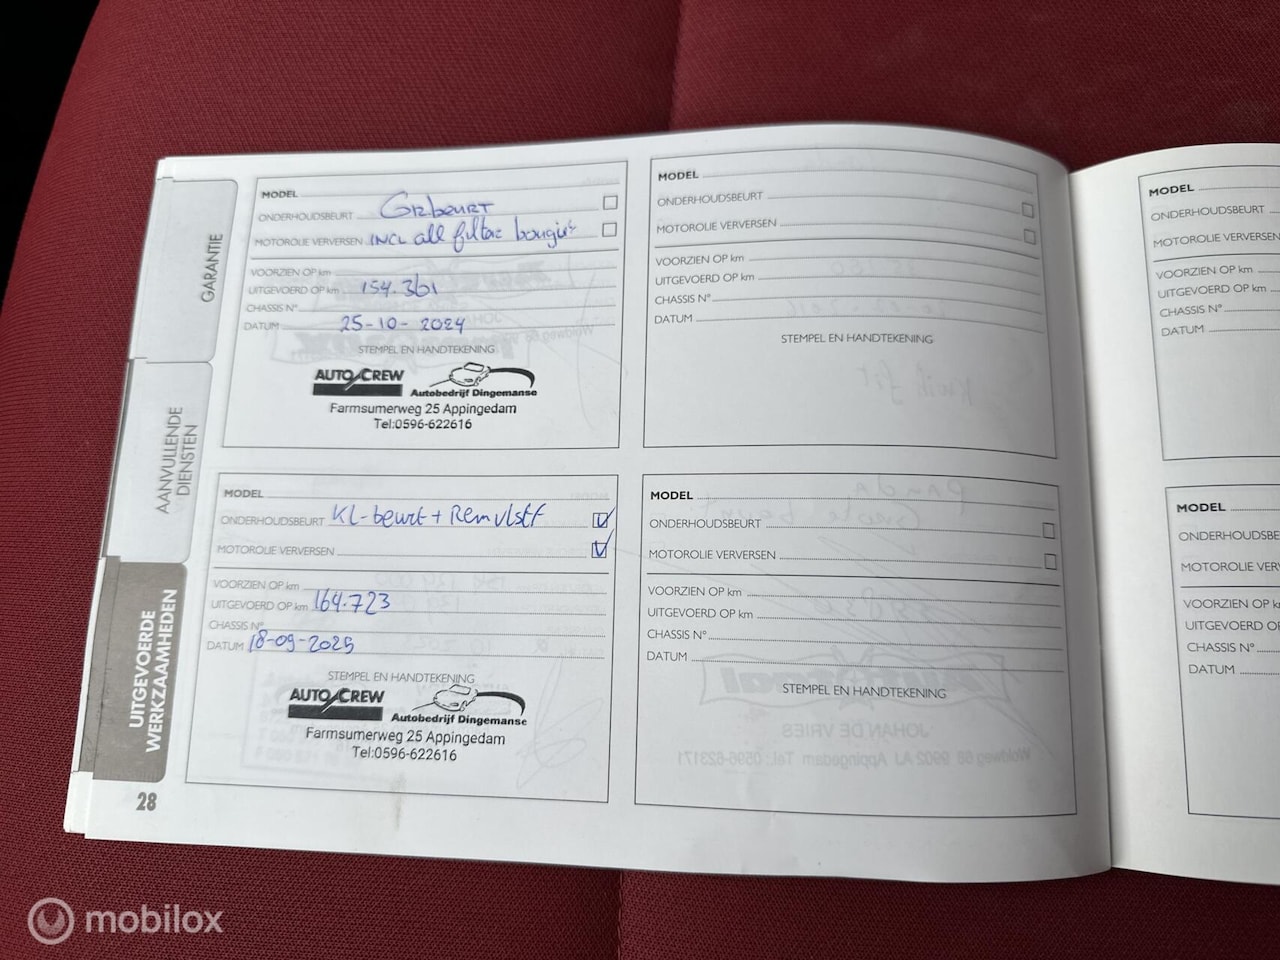 GARANTIE
AANVULLENDE
DIENSTEN
UITGEVOERDE
WERKZAAMHEDEN
28
MODEL
ONDERHOUDSBEURT GR beurt
MOTOROLIE VERVERSEN INCL all filter bougies
VOORZIEN OP km
UITGEVOERD OP km 154.361
CHASSIS N°
DATUM 25-10-2024
STEMPEL EN HANDTEKENING
AUTO CREW
Autobedrijf Dingemanse
Farmsumerweg 25 Appingedam
Tel:0596-622616
MODEL
ONDERHOUDSBEURT KL-beurt + Remvlstf
MOTOROLIE VERVERSEN
VOORZIEN OP km
UITGEVOERD OP km 164.723
CHASSIS N°
DATUM 18-09-2025
STEMPEL EN HANDTEKENING
AUTO CREW
Autobedrijf Dingemanse
Farmsumerweg 25 Appingedam
Tel:0596-622616
MODEL
ONDERHOUDSBEURT
MOTOROLIE VERVERSEN
VOORZIEN OP km
UITGEVOERD OP km
CHASSIS N°
DATUM
STEMPEL EN HANDTEKENING
MODEL
ONDERHOUDSBEURT
MOTOROLIE VERVERSEN
VOORZIEN OP km
UITGEVOERD OP km
CHASSIS N°
DATUM
STEMPEL EN HANDTEKENING
MODEL
ONDERHOUDSBEURT
MOTOROLIE VERVERSEN
VOORZIEN OP km
UITGEVOERD OP km
CHASSIS N°
DATUM
MODEL
ONDERHOUDSBE
MOTOROLIE VER
VOORZIEN OP k
UITGEVOERD OP
CHASSIS N°
DATUM
mobilox